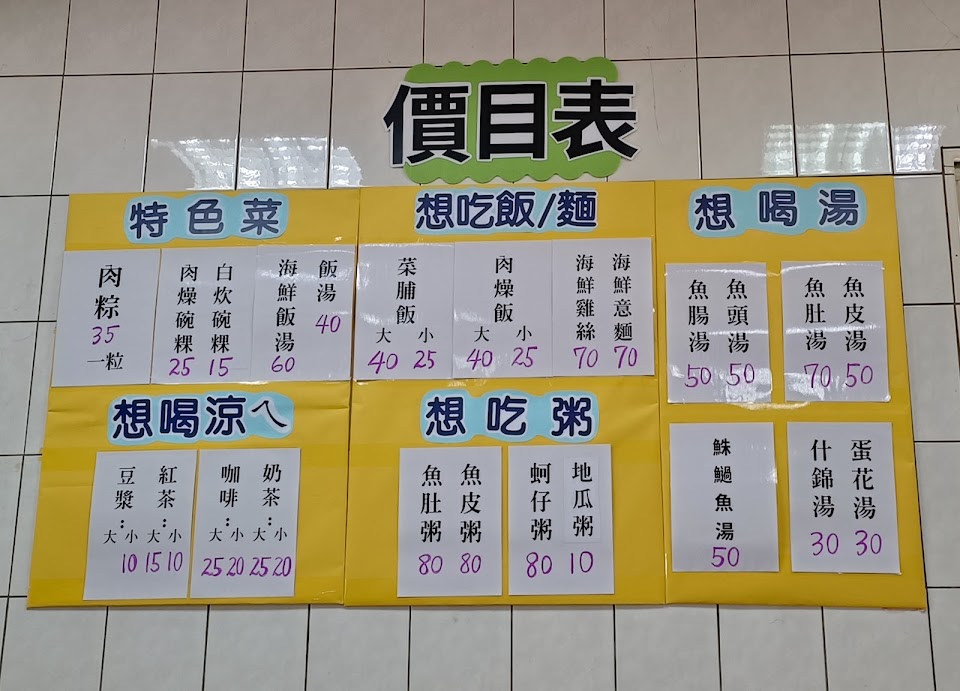 價目表
特色菜
肉粽 35 一粒
肉燥碗粿 25
白炊碗粿 15
海鮮飯湯 60
飯湯 40
想吃飯/麵
菜脯飯 大 40 小 25
肉燥飯 大 40 小 25
海鮮雞絲 70
海鮮意麵 70
想喝湯
魚腸湯 50
魚頭湯 50
魚肚湯 70
魚皮湯 50
鮢鯃魚湯 50
什錦湯 30
蛋花湯 30
想喝涼ㄟ
豆漿: 大 小 10
紅茶: 大 15 小 10
咖啡: 大 25 小 20
奶茶: 大 25 小 20
想吃粥
魚肚粥 80
魚皮粥 80
蚵仔粥 80
地瓜粥 10